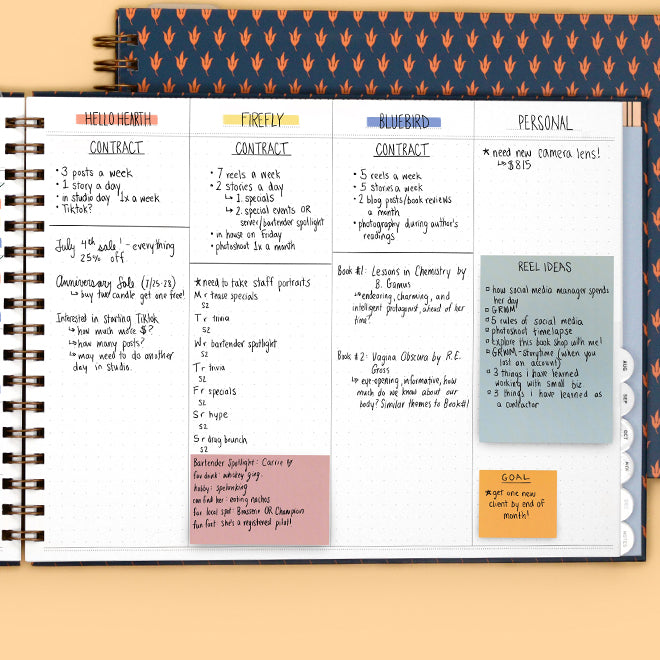 HELLO HEARTH
CONTRACT
• 3 posts a week
• 1 story a day
• in studio day 1x a week
• Tiktok?
July 4th sale! - everything
25% off
Anniversary Sale (7/25-28)
↳ buy two candle get one free!
Interested in starting Tiktok
↳ how much more $?
↳ how many posts?
↳ may need to do another
day in studio.
FIREFLY
CONTRACT
• 7 reels a week
• 2 stories a day
↳ 1. specials
↳ 2. special events OR
server/bartender spotlight
• in house on Friday
• photoshoot 1x a month
★need to take staff portraits
M r tease specials
S2
T r trivia
S2
W r bartender spotlight
S2
T r trivia
S2
F r specials
S2
S r hype
S2
S r drag brunch
S2
Bartender Spotlight: Carrie
fav drink: whiskey ging.
hobby: spelunking
can find her: eating nachos
fav local spot: Brasserie OR Champion
fun fact: she's a registered pilot!
BLUEBIRD
CONTRACT
• 5 reels a week
• 5 stories a week
• 2 blog posts/book reviews
a month
• photography during author's
readings
Book #1: Lessons in Chemistry by
B. Gamus
↳ endearing, charming, and
intelligent protagonist, ahead of her
time?
Book #2: Vagina Obscura by R.E.
Gross
↳ eye-opening, informative, how
much do we know about our
body? Similar themes to Book#1
PERSONAL
★ need new camera lens!
↳ $815
REEL IDEAS
how social media manager spends
her day
GRWM
5 rules of social media
photoshoot timelapse
Explore this book shop with me!
GRWM - Storytime (when you
lost an account)
3 things I have learned
working with small biz
3 things I have learned as
a contractor
GOAL
★get one new
client by end of
month!
AUG
SEP
OCT
NOV
DEC
NOTES